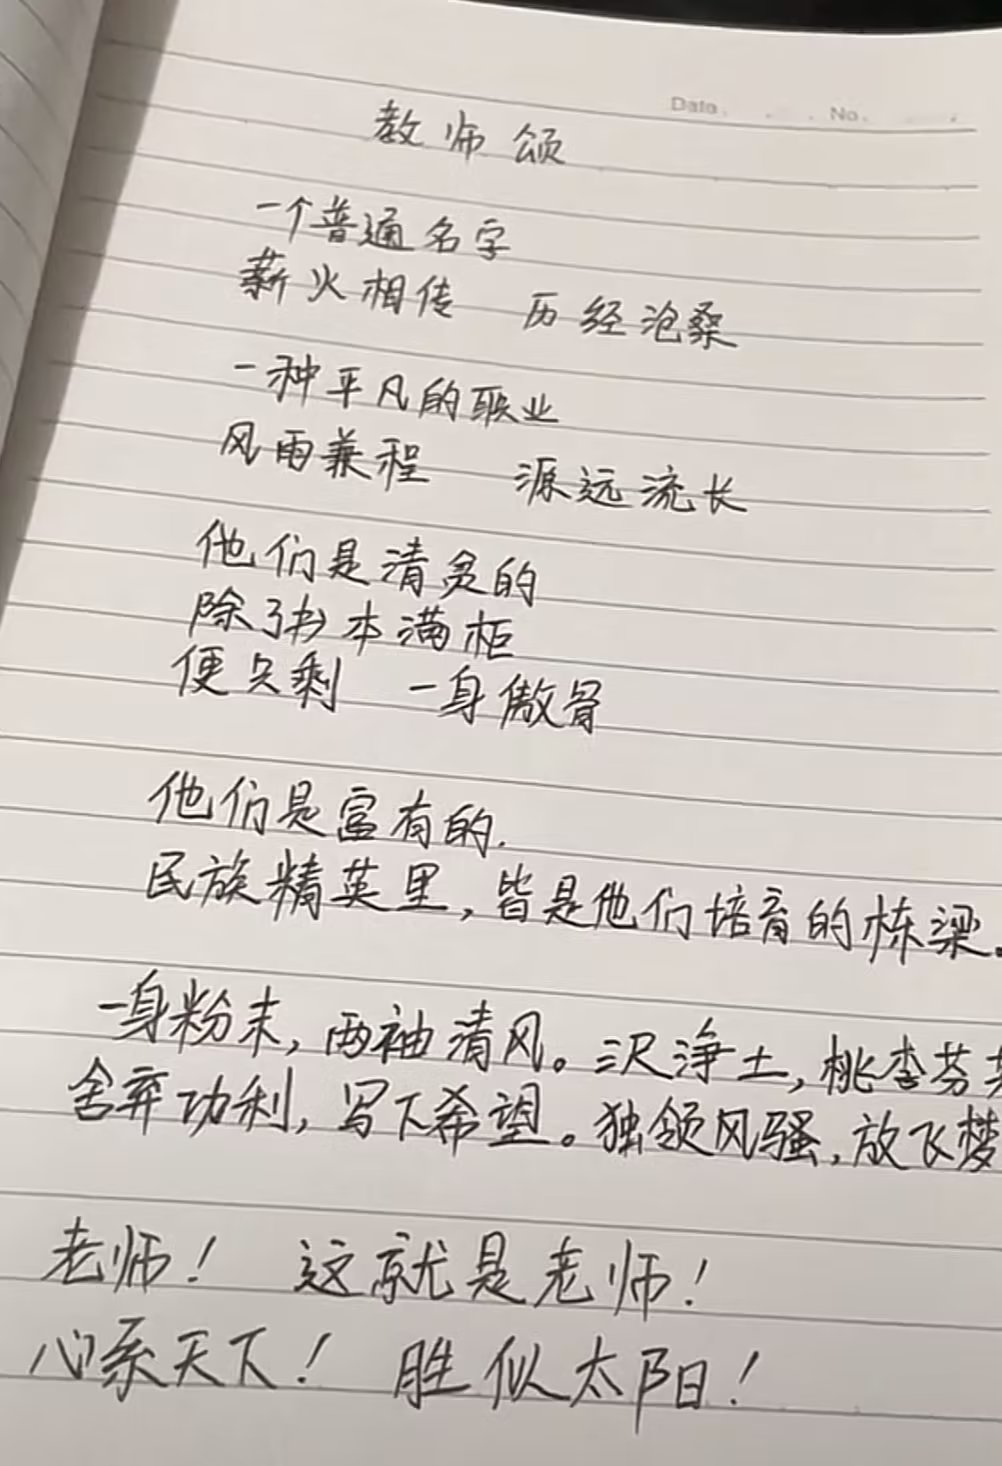 Date. No.
教师颂
一个普通名字
薪火相传 历经沧桑
一种平凡的职业
风雨兼程 源远流长
他们是清贫的
除了书本满柜
便只剩 一身傲骨
他们是富有的.
民族精英里,皆是他们培育的栋梁。
一身粉末,两袖清风。三尺净土,桃李芬芳
舍弃功利,写下希望。独领风骚,放飞梦
老师! 这就是老师!
心系天下! 胜似太阳!